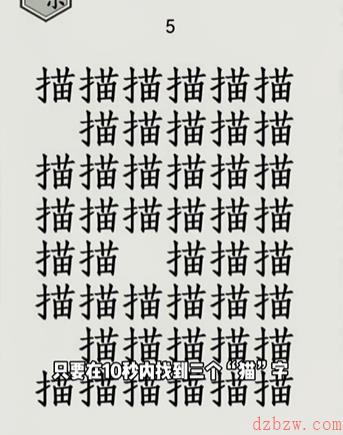 5
描描描描描描
描描描描描
描描描描描描
描描描描描描
描描 描描描
描描描描描描
描描描描描
只要在10秒内找到三个“猫”字
描描描描描描
dzbzw.com